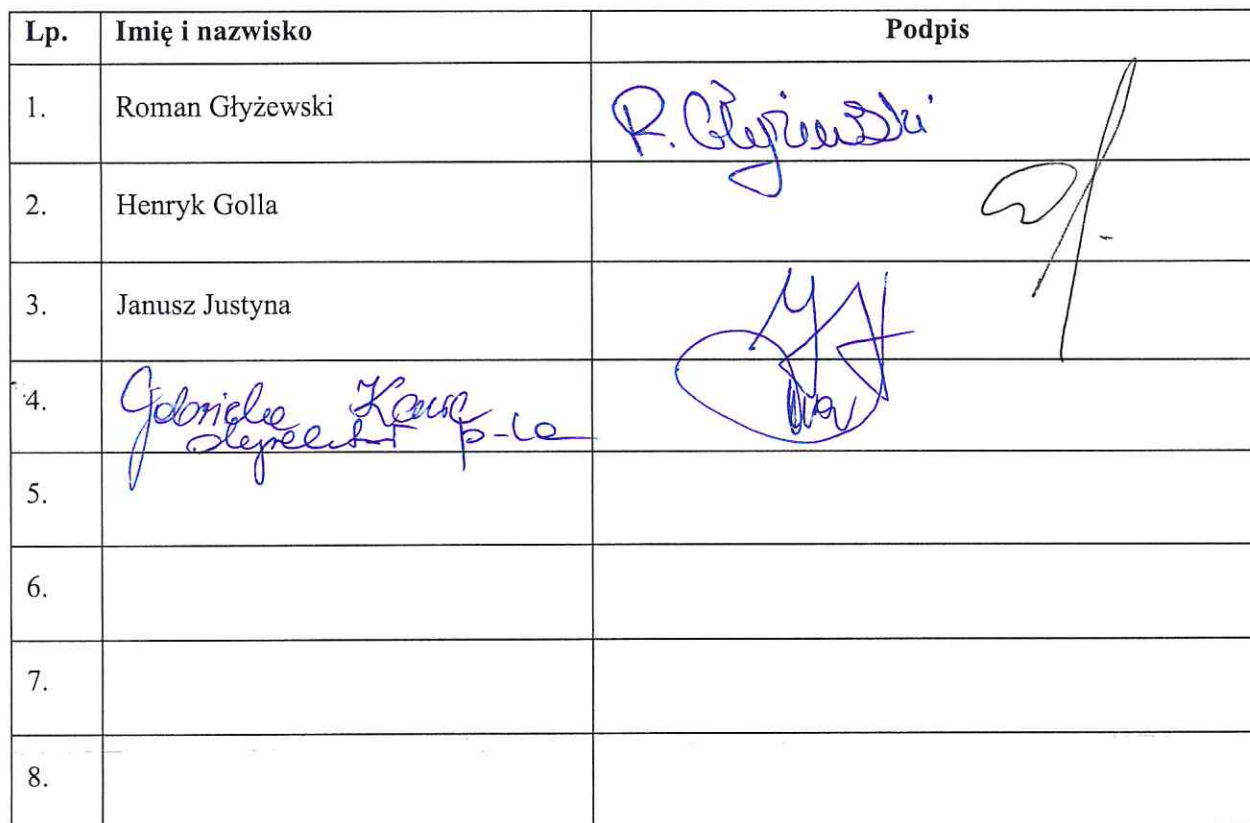 Lp. Imię i nazwisko Podpis
1. Roman Głyżewski R. Głyżewski
2. Henryk Golla
3. Janusz Justyna
4. Gabriela
5.
6.
7.
8.